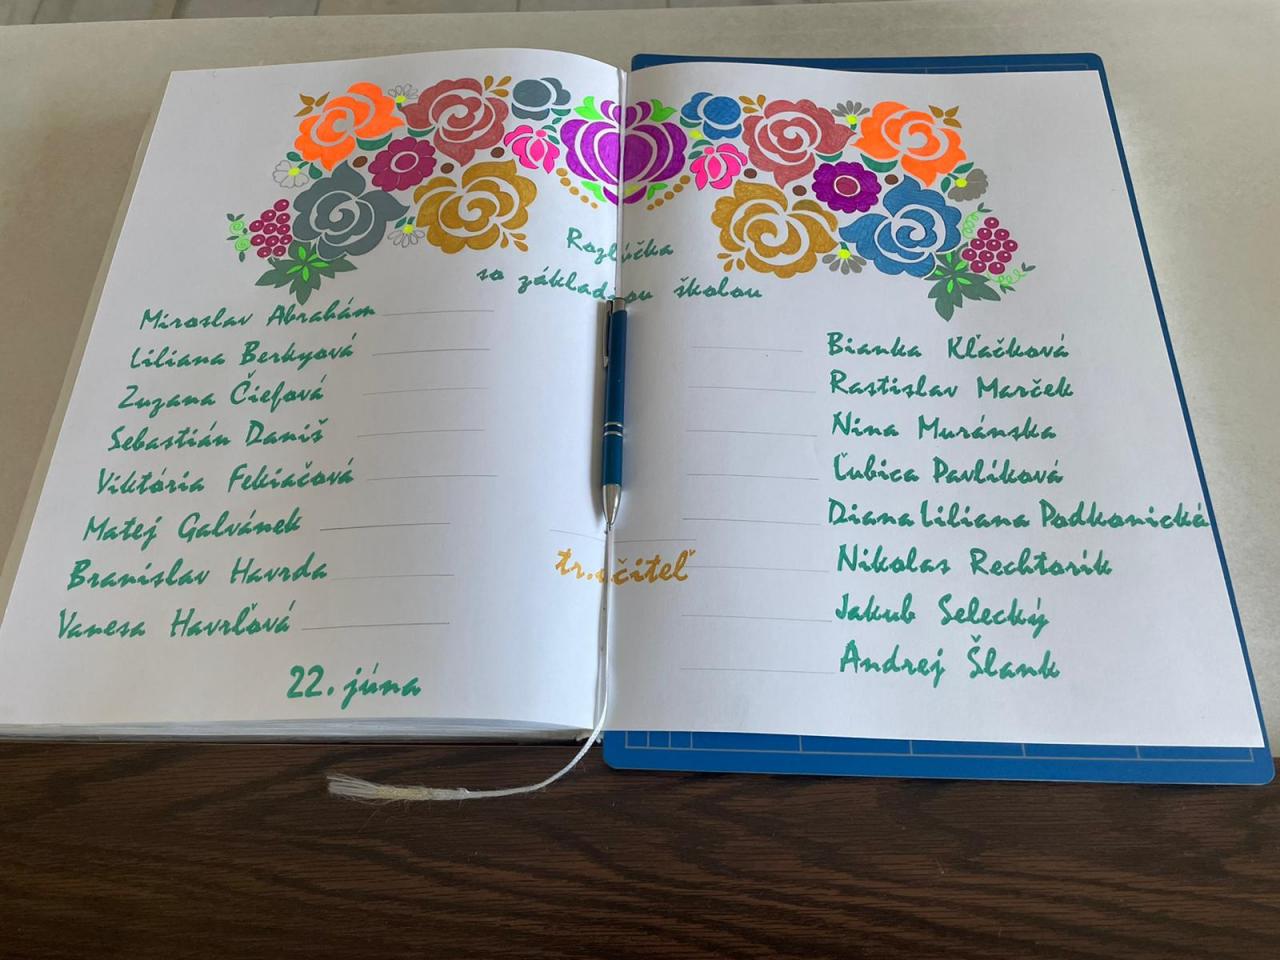 Rozlúčka
so základnou školou
Miroslav Abrahám
Liliana Berkyová
Zuzana Čiefová
Sebastián Daniš
Viktória Fekiačová
Matej Galvánek
Branislav Havrda
Vanesa Havrľová
22. júna
tr. učiteľ
Bianka Kľačková
Rastislav Marček
Nina Muránska
Ľubica Pavlíková
Diana Liliana Podkonická
Nikolas Rechtorík
Jakub Selecký
Andrej Šlank